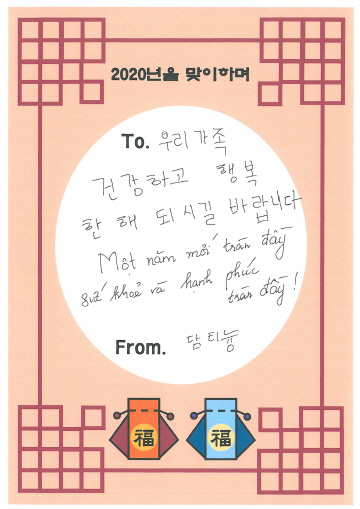 2020년을 맞이하며
To. 우리가족
건강하고 행복
한 해 되시길 바랍니다
Một năm mới tràn đầy
sức khoẻ và hạnh phúc
tràn đầy!
From. 담티늉
福 福